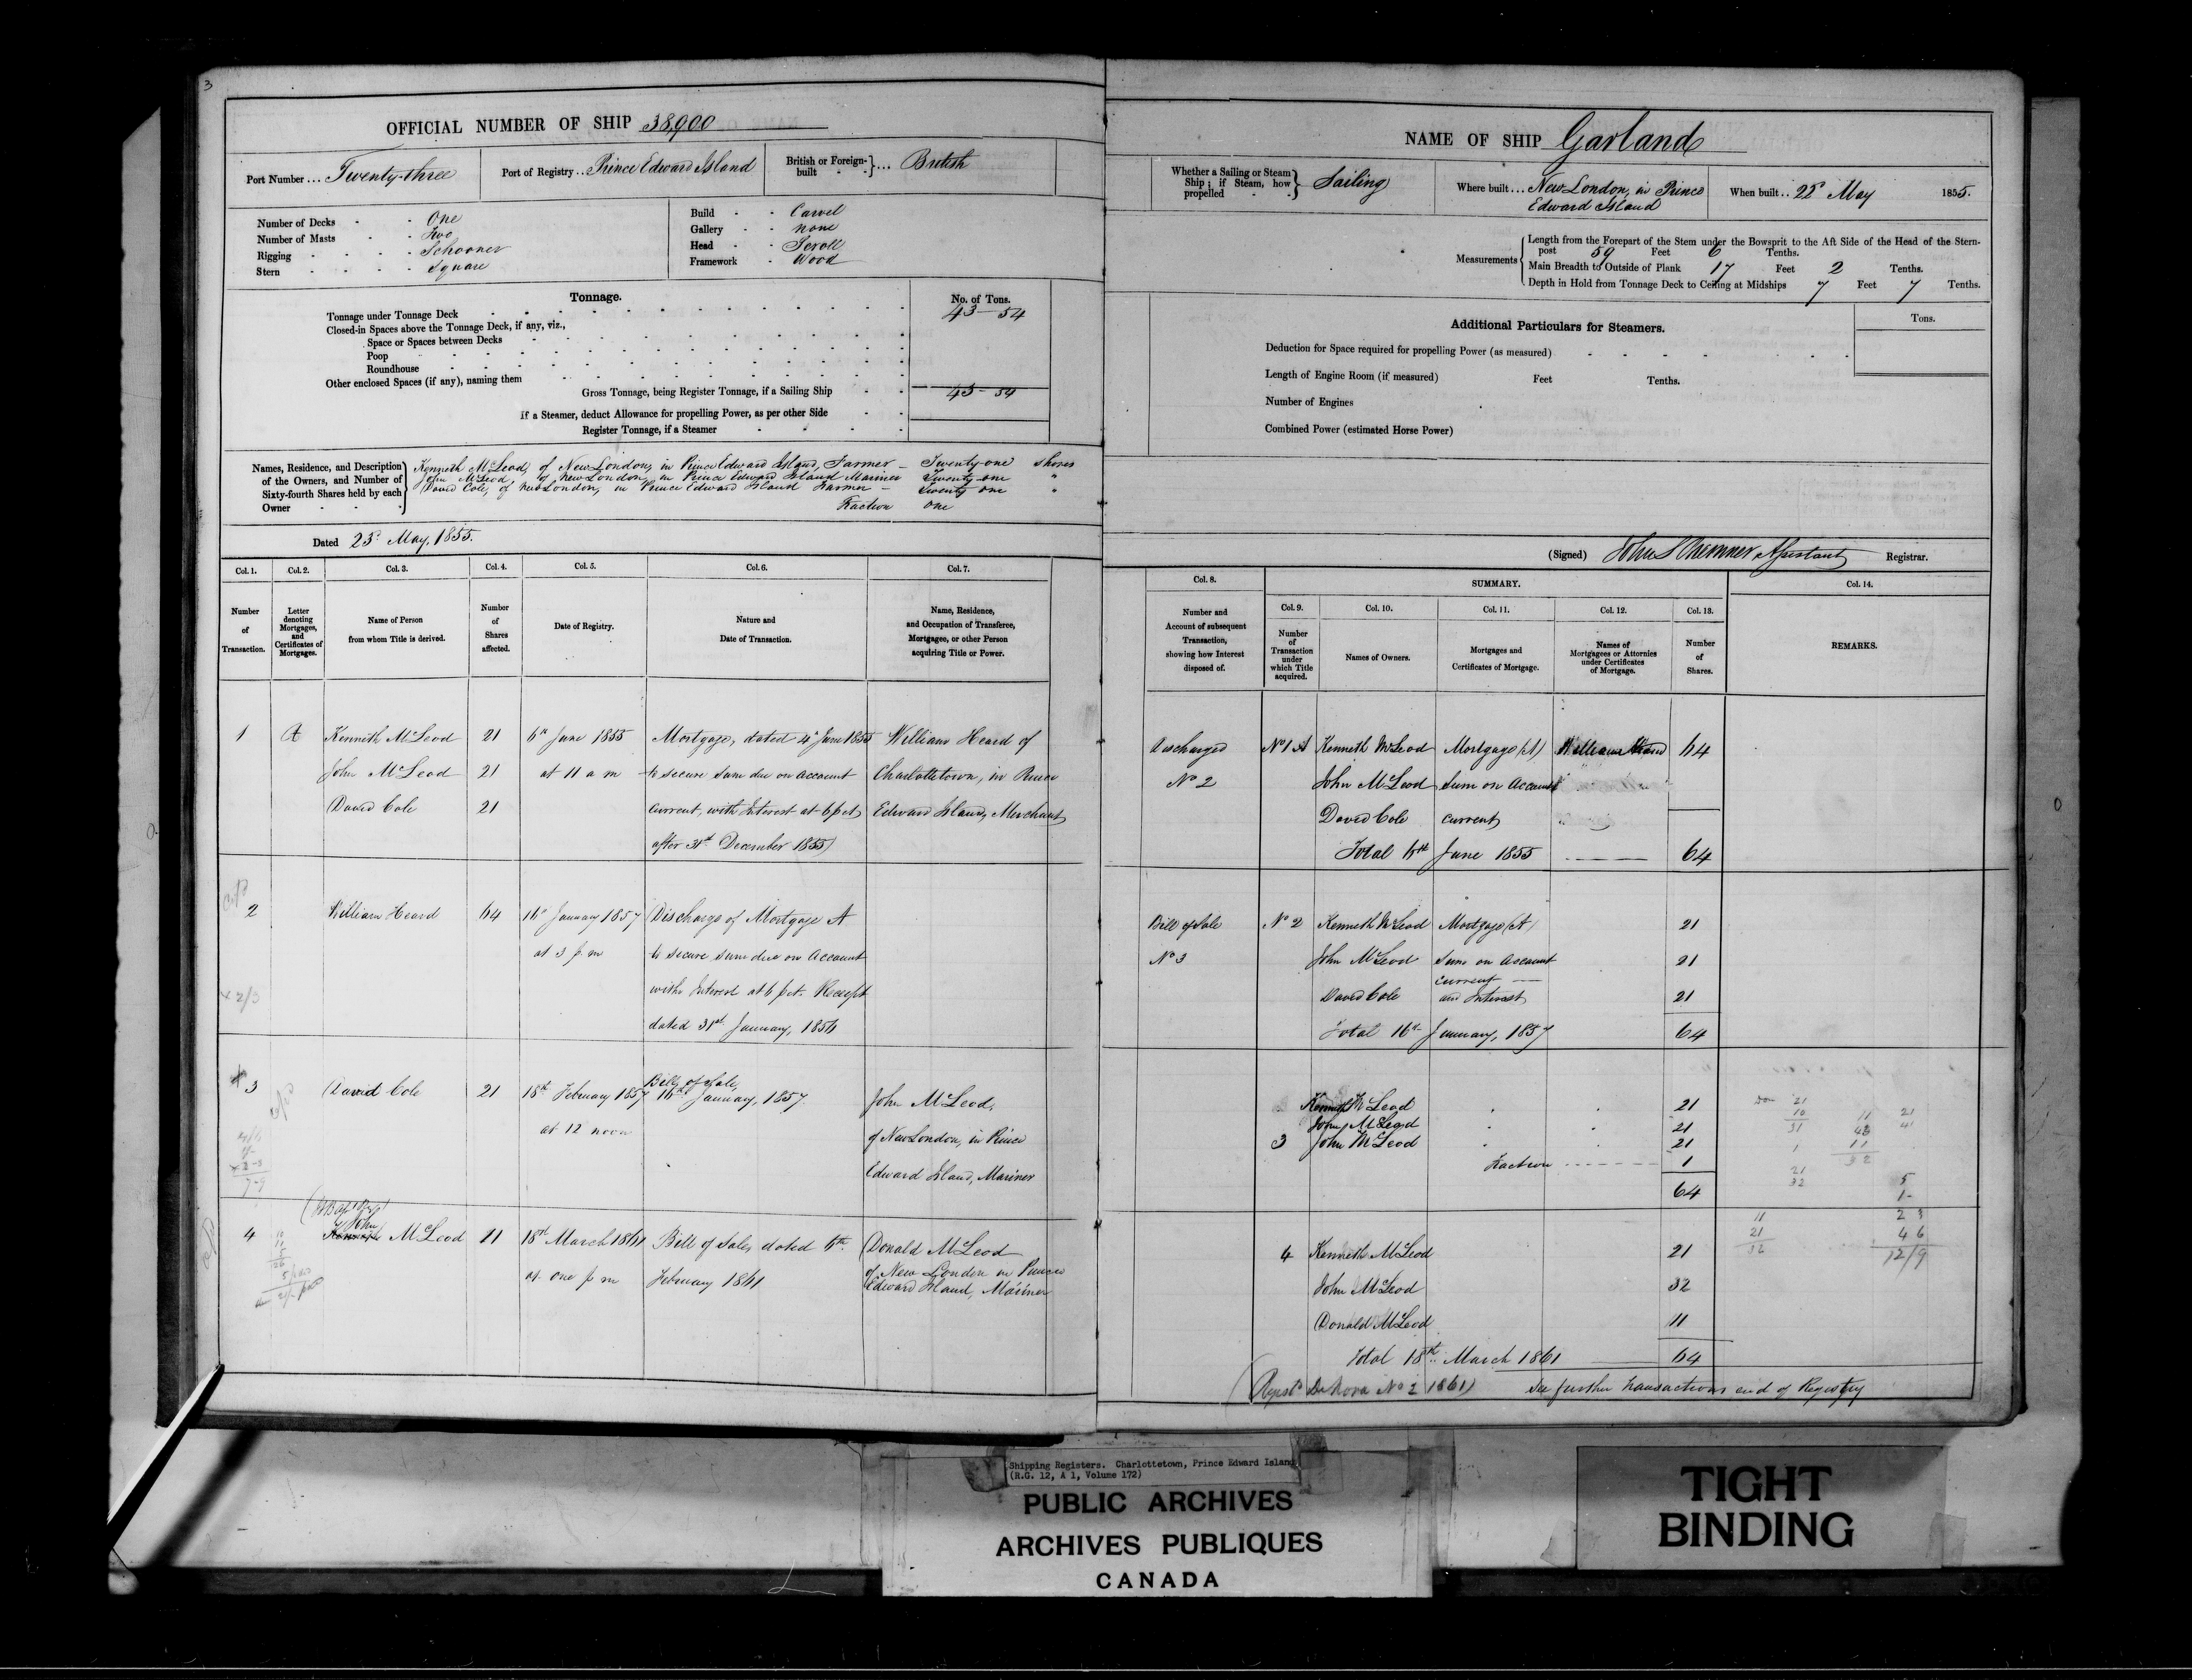 3
OFFICIAL NUMBER OF SHIP 38,900
Port Number ... Twenty-three
Port of Registry .. Prince Edward Island
British or Foreign-built } ... British
Number of Decks - - One
Number of Masts - - Two
Rigging - - - - Schooner
Stern - - - - Square
Build - - Carvel
Gallery - - none
Head - - Scroll
Framework - Wood
Tonnage.
No. of Tons.
Tonnage under Tonnage Deck 43 - 54
Closed-in Spaces above the Tonnage Deck, if any, viz.,
Space or Spaces between Decks
Poop
Roundhouse
Other enclosed Spaces (if any), naming them
Gross Tonnage, being Register Tonnage, if a Sailing Ship 43 - 54
If a Steamer, deduct Allowance for propelling Power, as per other Side
Register Tonnage, if a Steamer
Names, Residence, and Description of the Owners, and Number of Sixty-fourth Shares held by each Owner
Kenneth McLeod, of New London, in Prince Edward Island, Farmer - Twenty-one Shares
John McLeod, of New London, in Prince Edward Island Mariner Twenty one "
David Cole, of New London, in Prince Edward Island Farmer - Twenty one "
Fraction one
Dated 23d May, 1855.
Col. 1. Col. 2. Col. 3. Col. 4. Col. 5. Col. 6. Col. 7.
Number of Transaction.
Letter denoting Mortgages, and Certificates of Mortgages.
Name of Person from whom Title is derived.
Number of Shares affected.
Date of Registry.
Nature and Date of Transaction.
Name, Residence, and Occupation of Transferee, Mortgagee, or other Person acquiring Title or Power.
1 A Kenneth McLeod 21 6th June 1855 Mortgage, dated 4th June 1855 William Heard of
John McLeod 21 at 11 a m to secure sum due on account Charlottetown, in Prince
David Cole 21 current, with Interest at 6 p ct Edward Island, Merchant
after 31st December 1855
2 William Heard 64 16th January 1857 Discharge of Mortgage A
at 3 p. m to secure sum due on Account
with Interest at 6 p ct. Receipt
dated 31st January, 1856
3 David Cole 21 18th February 1857 Bill of Sale, 16th January, 1857. John McLeod,
at 12 noon of New London, in Prince
Edward Island, Mariner
4 John McLeod 11 18th March 1861 Bill of Sale, dated 6th. Donald McLeod
at one p m February 1861 of New London in Prince
Edward Island, Mariner
NAME OF SHIP Garland
Whether a Sailing or Steam Ship; if Steam, how propelled } Sailing
Where built ... New London, in Prince Edward Island
When built .. 22d May 1855.
Measurements
Length from the Forepart of the Stem under the Bowsprit to the Aft Side of the Head of the Stern-
post 59 Feet 6 Tenths.
Main Breadth to Outside of Plank 17 Feet 2 Tenths.
Depth in Hold from Tonnage Deck to Ceiling at Midships 7 Feet 7 Tenths.
Additional Particulars for Steamers.
Tons.
Deduction for Space required for propelling Power (as measured)
Length of Engine Room (if measured) Feet Tenths.
Number of Engines
Combined Power (estimated Horse Power)
(Signed) John Assistant Registrar.
Col. 8. SUMMARY. Col. 14.
Col. 9. Col. 10. Col. 11. Col. 12. Col. 13.
Number and Account of subsequent Transaction, showing how Interest disposed of.
Number of Transaction under which Title acquired.
Names of Owners.
Mortgages and Certificates of Mortgage.
Names of Mortgagees or Attornies under Certificates of Mortgage.
Number of Shares.
REMARKS.
Discharged No 1 A Kenneth McLeod Mortgage (A) William Heard 64
No 2 John McLeod Sum on Account
David Cole current
Total 6th June 1855 64
Bill of Sale No 2 Kenneth McLeod Mortgage (A) 21
No 3 John McLeod Sum on Account 21
current
David Cole and Interest 21
Total 16th January, 1857 64
Kenneth McLeod 21
John McLeod 21
3 John McLeod 21
Fraction 1
64
4 Kenneth McLeod 21
John McLeod 32
Donald McLeod 11
Total 18th March 1861 64
(Regist'd De Novo No 2 1861) See further transactions end of Registry
Shipping Registers. Charlottetown, Prince Edward Island
(R.G. 12, A 1, Volume 172)
PUBLIC ARCHIVES
ARCHIVES PUBLIQUES
CANADA
TIGHT
BINDING